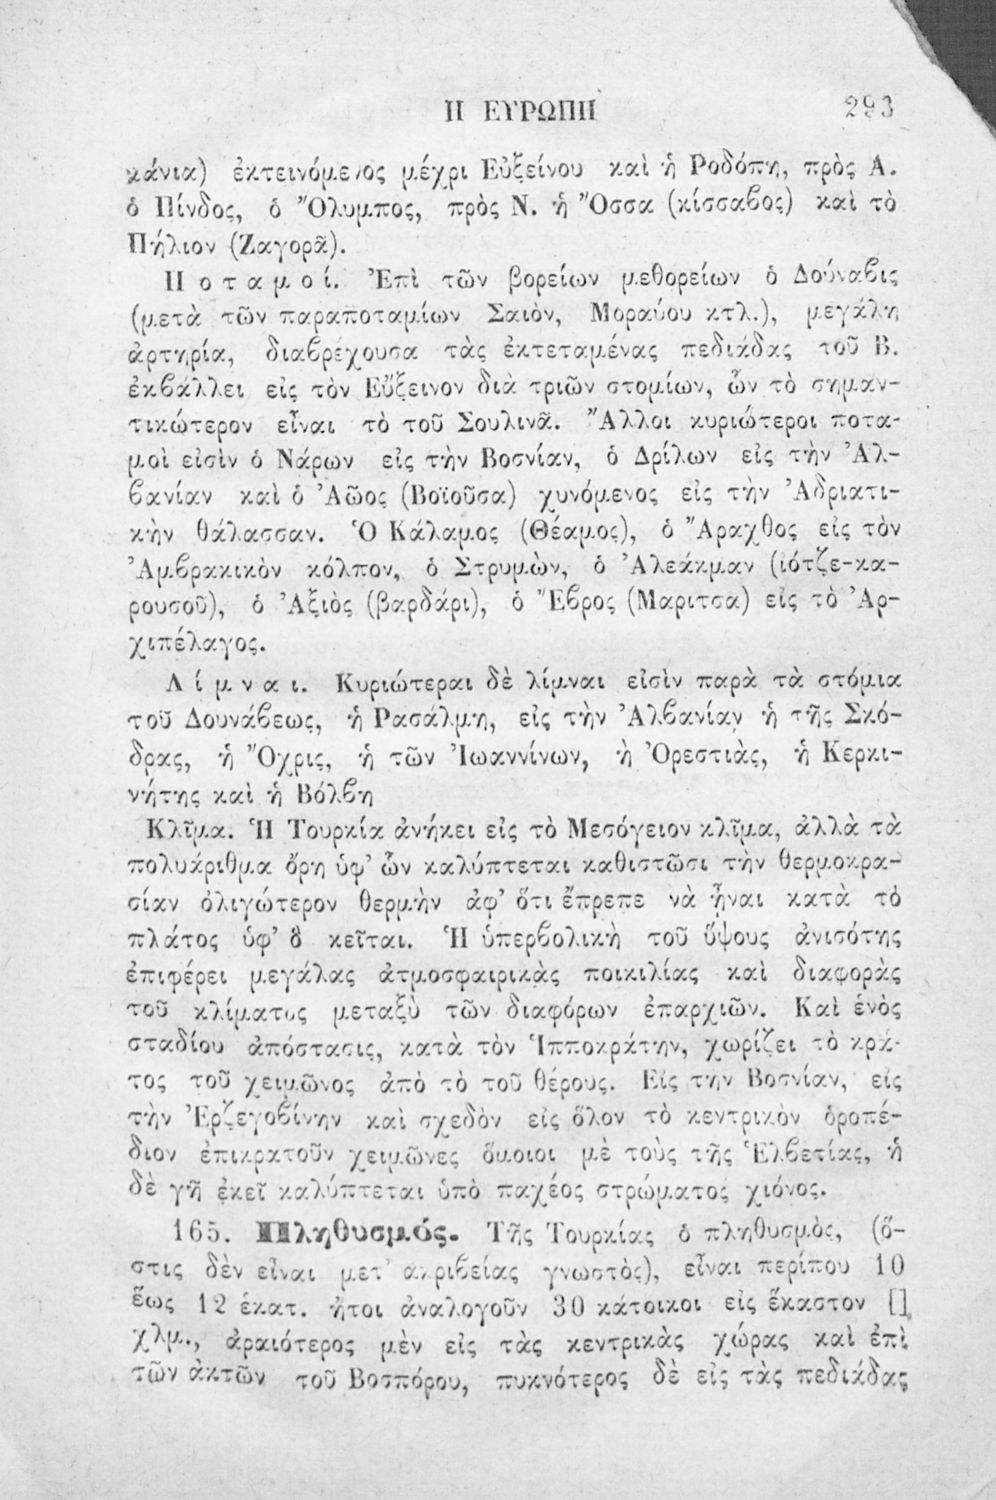 Η ΕΥΡΩΠΗ 293
κάνια) ἐκτεινόμενος μέχρι Εὐξείνου καὶ ἡ Ροδόπη, πρὸς Α.
ὁ Πίνδος, ὁ Ὄλυμπος, πρὸς Ν. ἡ Ὄσσα (κίσσαβος) καὶ τὸ
Πήλιον (Ζαγορᾶ).
Ποταμοί. Ἐπὶ τῶν βορείων μεθορείων ὁ Δούναβις
(μετὰ τῶν παραποταμίων Σαιὸν, Μοραύου κτλ.), μεγάλη
ἀρτηρία, διαβρέχουσα τὰς ἐκτεταμένας πεδιάδας τοῦ Β.
ἐκβάλλει εἰς τὸν Εὔξεινον διὰ τριῶν στομίων, ὧν τὸ σημαν-
τικώτερον εἶναι τὸ τοῦ Σουλινᾶ. Ἄλλοι κυριώτεροι ποτα-
μοὶ εἰσὶν ὁ Νάρων εἰς τὴν Βοσνίαν, ὁ Δρίλων εἰς τὴν Ἀλ-
βανίαν καὶ ὁ Ἀῶος (Βοϊοῦσα) χυνόμενος εἰς τὴν Ἀδριατι-
κὴν θάλασσαν. Ὁ Κάλαμος (Θέαμος), ὁ Ἄραχθος εἰς τὸν
Ἀμβρακικὸν κόλπον, ὁ Στρυμὼν, ὁ Ἀλεάκμαν (ἰότζε-κα-
ρουσοῦ), ὁ Ἀξιὸς (βαρδάρι), ὁ Ἕβρος (Μαριτσα) εἰς τὸ Ἀρ-
χιπέλαγος.
Λίμναι. Κυριώτεραι δὲ λίμναι εἰσὶν παρὰ τὰ στόμια
τοῦ Δουνάβεως, ἡ Ρασάλμη, εἰς τὴν Ἀλβανίαν ἡ τῆς Σκό-
δρας, ἡ Ὄχρις, ἡ τῶν Ἰωαννίνων, ἡ Ὀρεστιὰς, ἡ Κερκι-
νήτης καὶ ἡ Βόλβη
Κλῖμα. Ἡ Τουρκία ἀνήκει εἰς τὸ Μεσόγειον κλῖμα, ἀλλὰ τὰ
πολυάριθμα ὄρη ὑφ’ ὧν καλύπτεται καθιστῶσι τὴν θερμοκρα-
σίαν ὀλιγώτερον θερμὴν ἀφ’ ὅτι ἔπρεπε νὰ ἦναι κατὰ τὸ
πλάτος ὑφ’ ὃ κεῖται. Ἡ ὑπερβολικὴ τοῦ ὕψους ἀνισότης
ἐπιφέρει μεγάλας ἀτμοσφαιρικὰς ποικιλίας καὶ διαφορὰς
τοῦ κλίματος μεταξὺ τῶν διαφόρων ἐπαρχιῶν. Καὶ ἑνὸς
σταδίου ἀπόστασις, κατὰ τὸν Ἱπποκράτην, χωρίζει τὸ κρά-
τος τοῦ χειμῶνος ἀπὸ τὸ τοῦ θέρους. Εἰς τὴν Βοσνίαν, εἰς
τὴν Ἐρζεγοβίνην καὶ σχεδὸν εἰς ὅλον τὸ κεντρικὸν ὀροπέ-
διον ἐπικρατοῦν χειμῶνες ὅμοιοι μὲ τοὺς τῆς Ἑλβετίας, ἡ
δὲ γῆ ἐκεῖ καλύπτεται ὑπὸ παχέος στρώματος χιόνος.
165. Πληθυσμός. Τῆς Τουρκίας ὁ πληθυσμὸς, (ὅ-
στις δὲν εἶναι μετ’ ἀκριβείας γνωστὸς), εἶναι περίπου 10
ἕως 12 ἑκατ. ἤτοι ἀναλογοῦν 30 κάτοικοι εἰς ἕκαστον []
χλμ., ἀραιότερος μὲν εἰς τὰς κεντρικὰς χώρας καὶ ἐπὶ
τῶν ἀκτῶν τοῦ Βοσπόρου, πυκνότερος δὲ εἰς τὰς πεδιάδας